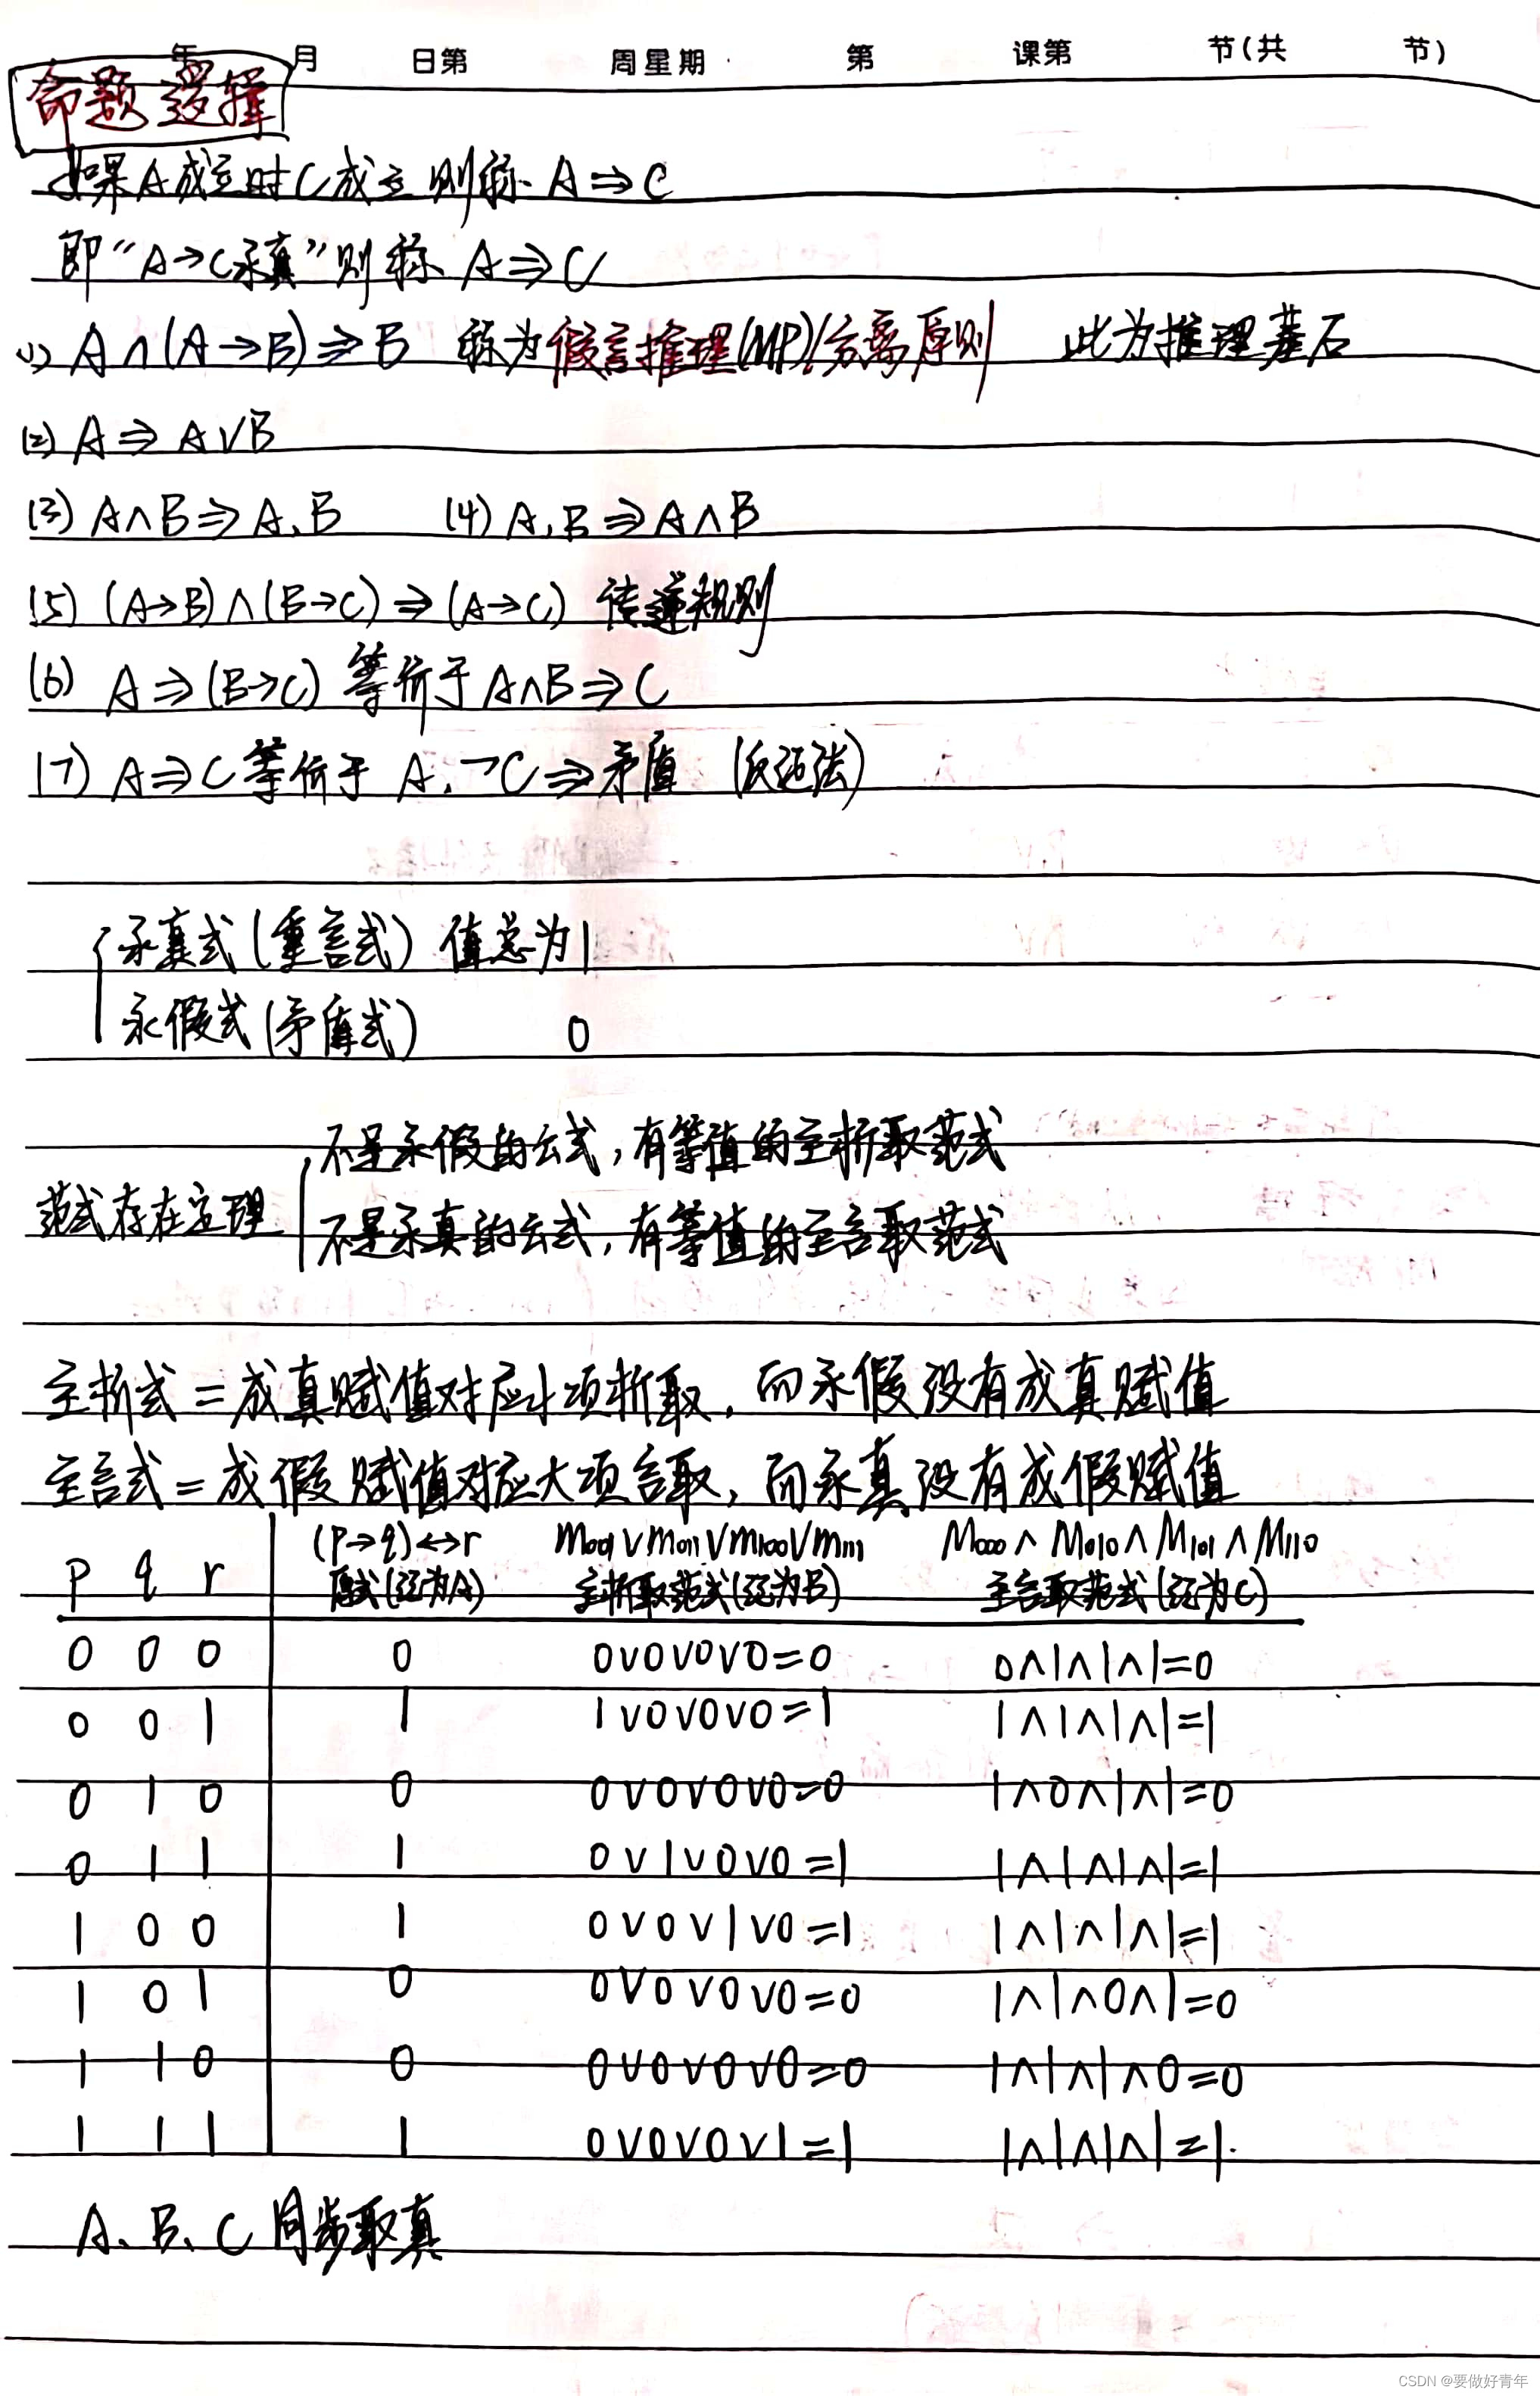 年 月 日第 周星期 第 课第 节(共 节)
命题逻辑
如果A成立时C成立则称 A⇒C
即“A→C永真”则称 A⇒C
(1) A∧(A→B)⇒B 称为假言推理(MP)/分离原则 此为推理基石
(2) A⇒A∨B
(3) A∧B⇒A、B (4) A,B⇒A∧B
(5) (A→B)∧(B→C)⇒(A→C) 传递规则
(6) A⇒(B→C) 等价于 A∧B⇒C
(7) A⇒C 等价于 A,¬C⇒矛盾 (反证法)
永真式(重言式) 值总为1
永假式(矛盾式) 0
不是永假的公式,有等值的主析取范式
范式存在定理
不是永真的公式,有等值的主合取范式
主析式=成真赋值对应小项析取,而永假没有成真赋值
主合式=成假赋值对应大项合取,而永真没有成假赋值
(p→q)↔r m001∨m011∨m100∨m111 M000∧M010∧M101∧M110
p q r 原式(记为A) 主析取范式(记为B) 主合取范式(记为C)
0 0 0 0 0∨0∨0∨0=0 0∧1∧1∧1=0
0 0 1 1 1∨0∨0∨0=1 1∧1∧1∧1=1
0 1 0 0 0∨0∨0∨0=0 1∧0∧1∧1=0
0 1 1 1 0∨1∨0∨0=1 1∧1∧1∧1=1
1 0 0 1 0∨0∨1∨0=1 1∧1∧1∧1=1
1 0 1 0 0∨0∨0∨0=0 1∧1∧0∧1=0
1 1 0 0 0∨0∨0∨0=0 1∧1∧1∧0=0
1 1 1 1 0∨0∨0∨1=1 1∧1∧1∧1=1.
A、B、C同步取真
CSDN @要做好青年